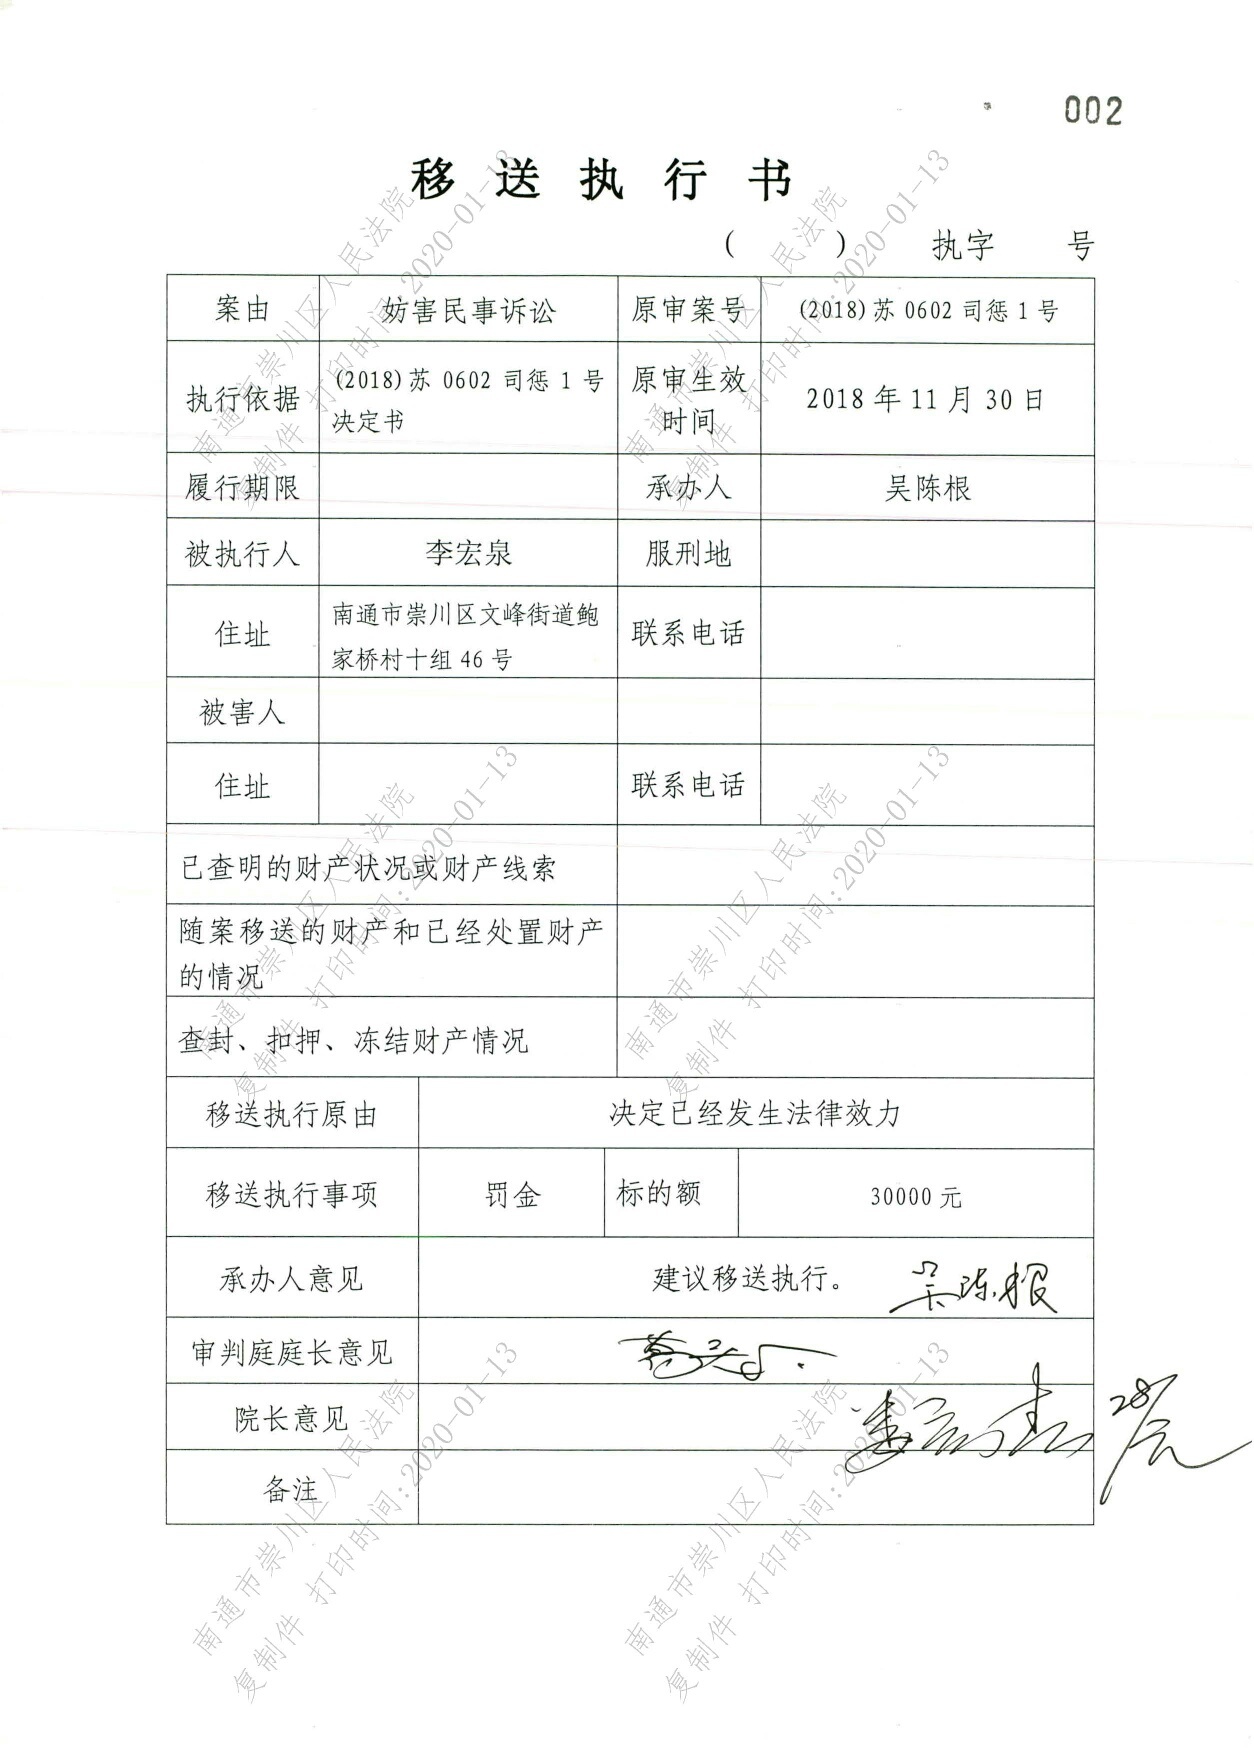 002
移送执行书
(　　　) 执字　　号
案由 妨害民事诉讼 原审案号 (2018)苏 0602 司惩 1 号
执行依据 (2018)苏 0602 司惩 1 号
决定书
原审生效
时间
2018 年 11 月 30 日
履行期限 承办人 吴陈根
被执行人 李宏泉 服刑地
住址 南通市崇川区文峰街道鲍
家桥村十组 46 号
联系电话
被害人
住址 联系电话
已查明的财产状况或财产线索
随案移送的财产和已经处置财产
的情况
查封、扣押、冻结财产情况
移送执行原由 决定已经发生法律效力
移送执行事项 罚金 标的额 30000 元
承办人意见 建议移送执行。 吴陈根
审判庭庭长意见
院长意见
备注
南通市崇川区人民法院
复制件 打印时间:2020-01-13
南通市崇川区人民法院
复制件 打印时间:2020-01-13
南通市崇川区人民法院
复制件 打印时间:2020-01-13
南通市崇川区人民法院
复制件 打印时间:2020-01-13
南通市崇川区人民法院
复制件 打印时间:2020-01-13
南通市崇川区人民法院
复制件 打印时间:2020-01-13